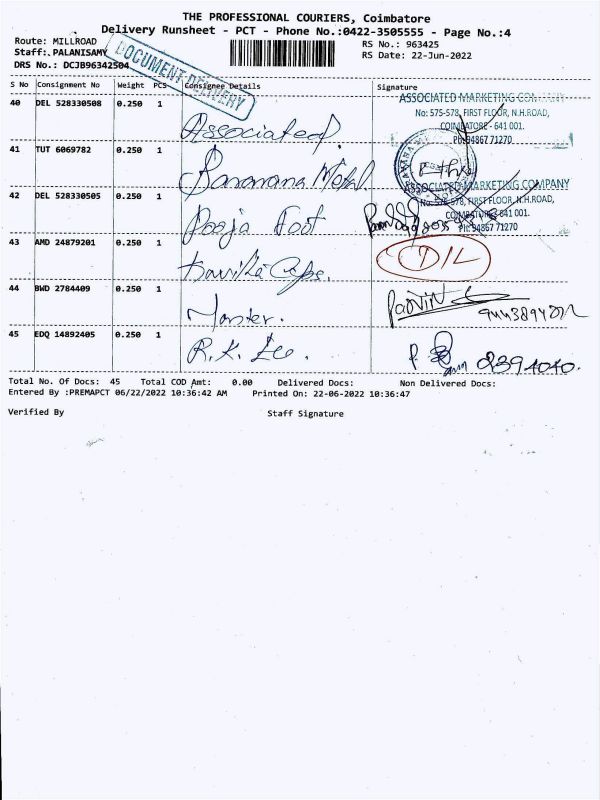 THE PROFESSIONAL COURIERS, Coimbatore
Delivery Runsheet - PCT - Phone No.:0422-3505555 - Page No.:4
Route: MILLROAD
RS No.: 963425
Staff: PALANISAMY
RS Date: 22-Jun-2022
DRS No.: DCJB96342504
DOCUMENT DELIVERY
S No Consignment No Weight PCS Consignee Details Signature
40 DEL 528330508 0.250 1 Associated
ASSOCIATED MARKETING COMPANY
No: 575-578, FIRST FLOOR, N.H.ROAD,
COIMBATORE - 641 001.
Ph: 94867 71270
41 TUT 6069782 0.250 1 Saravana Metal
ASSOCIATED MARKETING COMPANY
No: 575-578, FIRST FLOOR, N.H.ROAD,
COIMBATORE - 641 001.
Ph: 94867 71270
42 DEL 528330505 0.250 1 Pooja Foot
43 AMD 24879201 0.250 1 D/L
44 BWD 2784409 0.250 1
45 EDQ 14892405 0.250 1 R.K.
Total No. Of Docs: 45 Total COD Amt: 0.00 Delivered Docs: Non Delivered Docs:
Entered By :PREMAPCT 06/22/2022 10:36:42 AM Printed On: 22-06-2022 10:36:47
Verified By Staff Signature